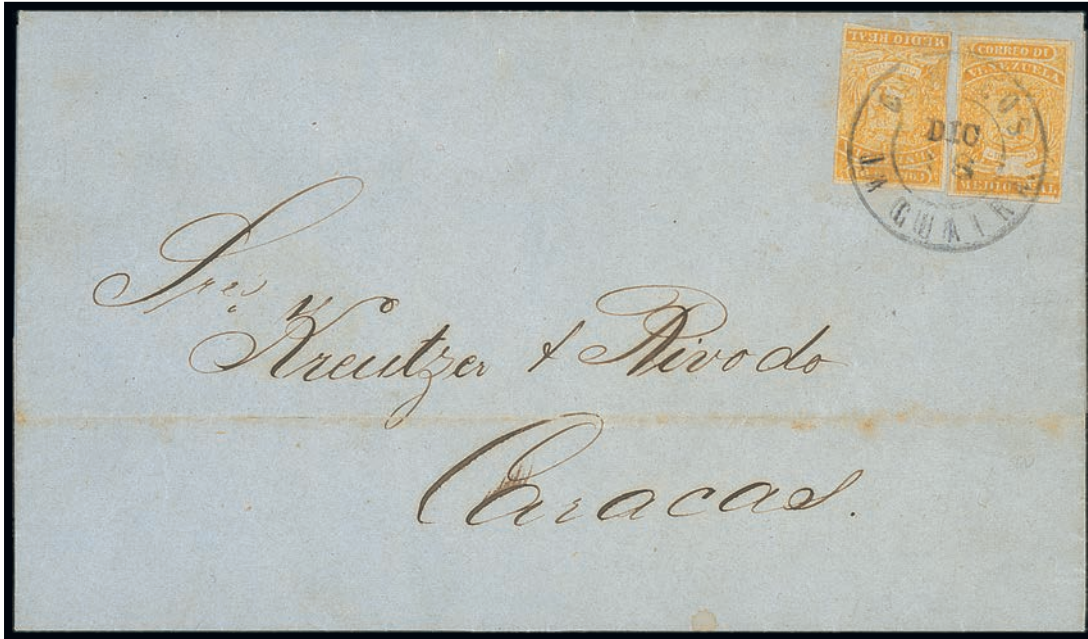 MEDIO REAL
CORREO DE
VENEZUELA
MEDIO REAL
DIC
LA GUAIRA
Sres
Kreutzer & Rivodo
Caracas.